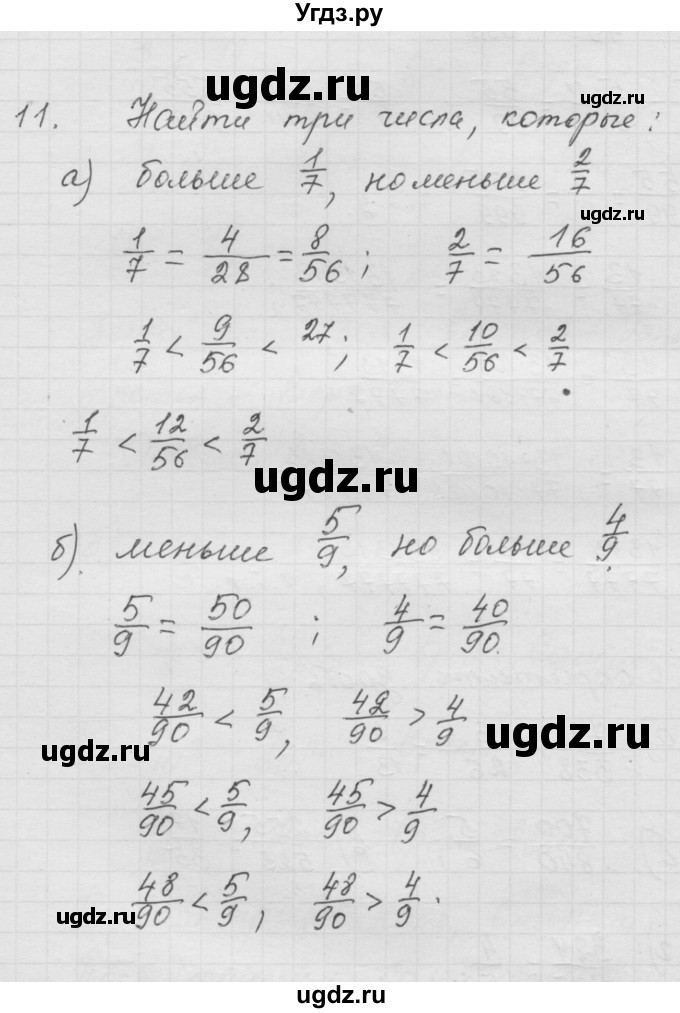 Угдз.ру
ugdz.ru
11. Найти три числа, которые:
ugdz.ru
а) больше 1/7, но меньше 2/7
ugdz.ru
1/7 = 4/28 = 8/56; 2/7 = 16/56
1/7 < 9/56 < 27; 1/7 < 10/56 < 2/7
1/7 < 12/56 < 2/7
ugdz.ru
б) меньше 5/9, но больше 4/9.
5/9 = 50/90; 4/9 = 40/90.
42/90 < 5/9, 42/90 > 4/9
ugdz.ru
ugdz.ru
45/90 < 5/9, 45/90 > 4/9
48/90 < 5/9, 48/90 > 4/9.
ugdz.ru
ugdz.ru